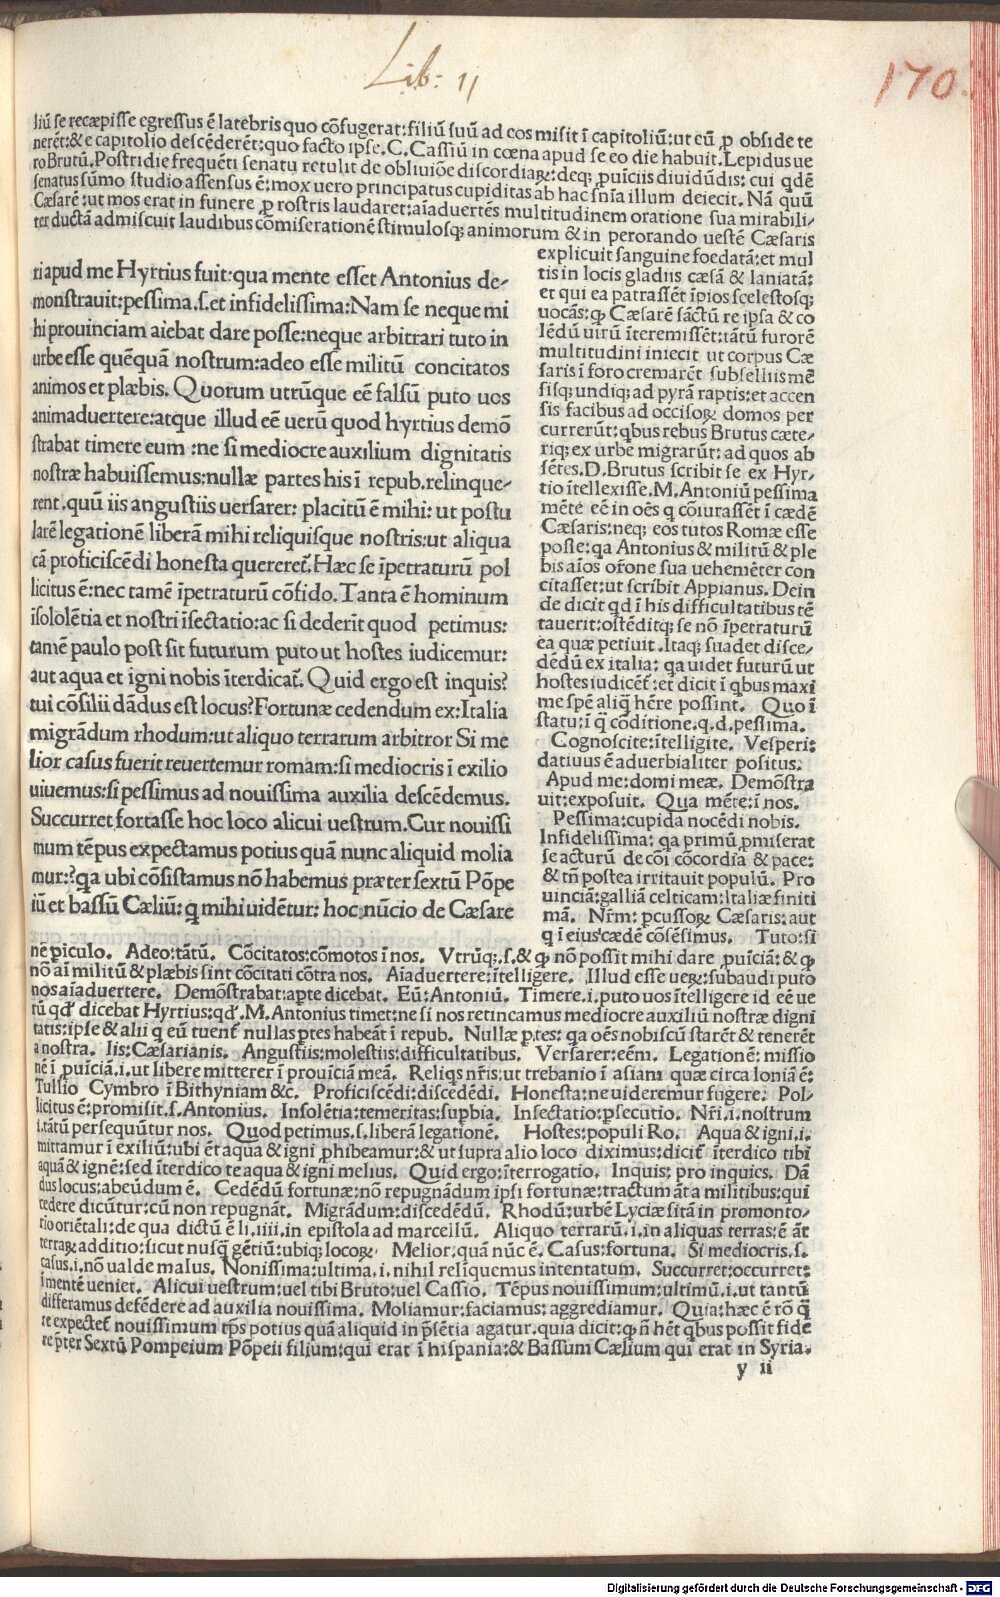 Lib: 11
170.
liū se recæpisse egressus ē latebris quo cōfugerat:filiū suū ad eos misit ī capitoliū:ut eū ꝓ obside te
nerēt:& e capitolio descēderēt:quo facto ipse.C.Cassiū in cœna apud se eo die habuit.Lepidus ue
ro Brutū.Postridie frequēti senatu retulit de obliuiōe discordiaꝝ:deqꝫ ꝓuīciis diuidūdis: cui qdē
senatus sūmo studio assensus ē:mox uero principatus cupiditas ab hac snīa illum deiecit. Nā quū
Cæsarē:ut mos erat in funere ꝓ rostris laudaret:aīaduertēs multitudinem oratione sua mirabili-
ter ductā admiscuit laudibus cōmiserationē stimulosqꝫ animorum & in perorando uestē Cæsaris
ri apud me Hyrtius fuit:qua mente esset Antonius de-
monstrauit:pessima.s.et infidelissima:Nam se neque mi
hi prouinciam aiebat dare posse:neque arbitrari tuto in
urbe esse quēquā nostrum:adeo esse militū concitatos
animos et plæbis. Quorum utrūque eē falsū puto uos
animaduertere:atque illud eē uerū quod hyrtius demō
strabat timere eum :ne si mediocre auxilium dignitatis
nostræ habuissemus:nullæ partes his ī repub.relinque-
rent.quū iis angustiis uersarer: placitū ē mihi: ut postu
larē legationē liberā mihi reliquisque nostris:ut aliqua
cā proficiscēdi honesta quereret̄. Hæc se īpetraturū pol
licitus ē:nec tamē īpetraturū cōfido. Tanta ē hominum
īsololētia et nostri īsectatio:ac si dederīt quod petimus:
tamē paulo post sit futurum puto ut hostes iudicemur:
aut aqua et igni nobis īterdicat̄. Quid ergo est inquis?
tui cōsilii dādus est locus?Fortunæ cedendum ex:Italia
migrādum rhodum:ut aliquo terrarum arbitror Si me
lior casus fuerit reuertemur romam:si mediocris ī exilio
uiuemus:si pessimus ad nouissima auxilia descēdemus.
Succurret fortasse hoc loco alicui uestrum.Cur nouissi
mum tēpus expectamus potius quā nunc aliquid molia
mur:?qa ubi cōsistamus nō habemus præter sextū Pōpe
iū et bassū Cæliū: q̄ mihi uidētur: hoc nūcio de Cæsare
explicuit sanguine foedatā:et mul
tis in locis gladiis cæsā & laniatā:
et qui ea patrassēt īpios scelestosqꝫ
uocās:ꝙ Cæsarē sāctū re ipsa & co
lēdū uirū īteremissēt:tātū furorē
multitudini iniecit ut corpus Cæ
saris ī foro cremarēt subselliis mē
sisqꝫ undiqꝫ ad pyrā raptis:et accen
sis facibus ad occisoꝝ domos per
currerūt:qbus rebus Brutus cæte-
riqꝫ ex urbe migrarūt: ad quos ab
sētes.D.Brutus scribit se ex Hyr-
tio ītellexisse.M.Antoniū pessima
mēte eē in oēs q cōiurassēt ī cædē
Cæsaris:neqꝫ eos tutos Romæ esse
posse:qa Antonius & militū & ple
bis aīos orōne sua uehemēter con
citasset:ut scribit Appianus. Dein
de dicit qd ī his difficultatibus tē
tauerit:ostēditqꝫ se nō īpetraturū
ea quæ petiuit. Itaqꝫ suadet disce-
dēdū ex italia: qa uidet futurū ut
hostes iudicēt̄:et dicit ī qbus maxi
me spē aliq̄ hēre possint. Quo ī
statu:ī q̄ cōditione.q.d.pessima.
Cognoscite:ītelligite. Vesperi:
datiuus ē aduerbialiter positus.
Apud me:domi meæ. Demōstra
uit:exposuit. Qua mēte:ī nos.
Pessima:cupida nocēdi nobis.
Infidelissima: qa primū ꝓmiserat
se acturū de cōi cōcordia & pace:
& tn̄ postea irritauit populū. Pro
uinciā:galliā celticam:Italiæ finiti
mā. Nr̄m: ꝑcussoꝝ Cæsaris: aut
q ī eius cædē cōsēsimus. Tuto:si
nē ꝑiculo. Adeo:tātū. Cōcitatos:cōmotos ī nos. Vtrūqꝫ.s.& ꝙ nō possit mihi dare ꝓuīciā:& ꝙ
nō aī militū & plæbis sint cōcitati cōtra nos. Aīaduertere:ītelligere. Illud esse ueꝝ:subaudi puto
uos aīaduertere. Demōstrabat:aꝑte dicebat. Eū:Antoniū. Timere.i.puto uos ītelligere id eē ue
rū qd' dicebat Hyrtius:qd'.M.Antonius timet:ne si nos retincamus mediocre auxiliū nostræ digni
tatis:ipse & alii q eū tuent̄ nullas ꝑtes habeāt ī repub. Nullæ ꝑtes: qa oēs nobiscū starēt & tenerēt
a nostra. Iis:Cæsarianis. Angustiis:molestiis:difficultatibus. Versarer:eēm. Legationē: missio
nē ī ꝓuīciā.i.ut libere mitterer ī prouīciā meā. Reliqs nr̄is:ut trebanio ī asiam quæ circa Ioniā ē:
Tullio Cymbro ī Bithyniam &c. Proficiscēdi:discedēdi. Honesta:ne uideremur fugere. Pol-
licitus ē:promisit.s.Antonius. Insolētia:temeritas:suꝑbia. Insectatio:ꝑsecutio. Nr̄i.i.nostrum
i.tātū persequūtur nos. Quod petimus.s.liberā legationē. Hostes:populi Ro. Aqua & igni.i.
mittamur ī exiliū:ubi ēt aqua & igni ꝓhibeamur:& ut supra alio loco diximus:dicit̄ īterdico tibi
aquā & ignē:sed īterdico te aqua & igni melius. Quid ergo:īterrogatio. Inquis: pro inquies. Dā
dus locus:abeūdum ē. Cedēdū fortunæ:nō repugnādum ipsi fortunæ:tractum āt a militibus:qui
cedere dicūtur:cū non repugnāt. Migrādum:discedēdū. Rhodū:urbē Lyciæ sitā in promonto-
rio oriētali:de qua dictū ē li.iiii.in epistola ad marcellū. Aliquo terrarū.i.in aliquas terras:ē āt
terraꝝ additio:sicut nusq̄ gētiū:ubiqꝫ locoꝝ. Melior:quā nūc ē. Casus:fortuna. Si mediocris.s.
casus.i.nō ualde malus. Nonissima:ultima.i.nihil relīquemus intentatum. Succurret:occurret:
ī mentē ueniet. Alicui uestrum:uel tibi Bruto:uel Cassio. Tēpus nouissimum:ultimū.i.ut tantū
differamus defēdere ad auxilia nouissima. Moliamur:faciamus: aggrediamur. Quia:hæc ē rō q̄
re expectet̄ nouissimum tp̄s potius quā aliquid in ꝓsētia agatur.quia dicit:ꝙ n̄ hēt qbus possit fide
re p̄ter Sextū Pompeium Pōpeii filium:qui erat ī hispania:& Bassum Cælium qui erat in Syria.
y ii
Digitalisierung gefördert durch die Deutsche Forschungsgemeinschaft - DFG